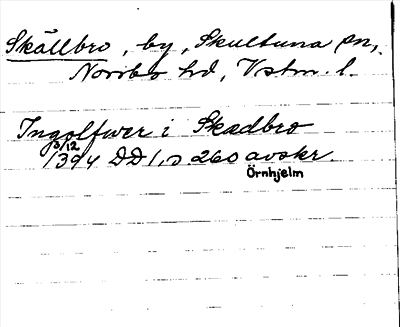 Skällbro, by, Skultuna sn,
Norrbo hd, Vstm. l.
Ingolfwer i Skædbro
3/12
1394 DD 1, s. 260 avskr.
Örnhjelm